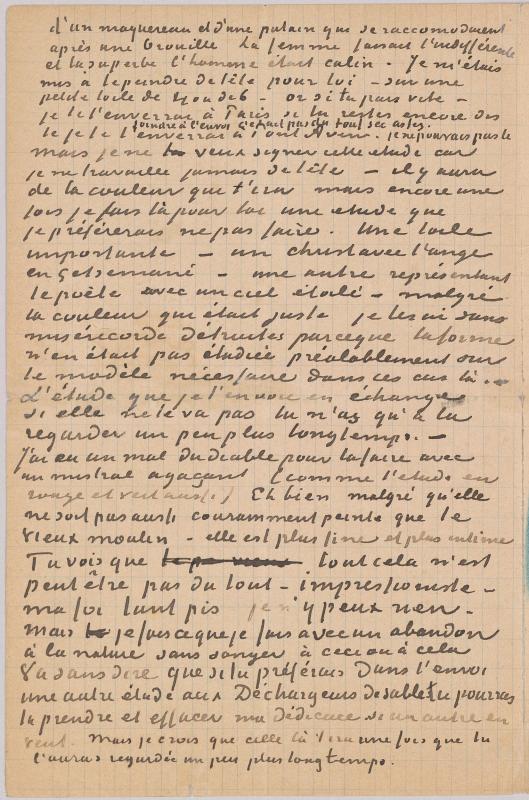 d'un maquereau et d'une putain qui se raccomodaient
après une brouille La femme faisait l'indifférente
et la superbe l'homme était calin. Je m'étais
mis à le peindre de tête pour toi – sur une
petite toile de 4 ou de 6 – or si tu pars vite –
je te l'enverrai à Paris si tu restes encore dis
le je te l'enverrai à Pont Aven. je ne pouvais pas le
joindre à l'envoi c'était pas sec tout sec assez.
mais je ne veux signer cette etude car
je ne travaille jamais de tête – il y aura
de la couleur qui t'ira mais encore une
fois je fais là pour toi une etude que
je préfererais ne pas faire. Une toile
importante – un christ avec l'ange
en Getsemané – une autre représentant
le poëte avec un ciel étoilé – malgré
la couleur qui était juste je les ai sans
miséricorde détruites parceque la forme
n'en était pas étudiée préalablement sur
le modèle nécessaire dans ces cas là. –
L'étude que je t'envoie en échange
si elle ne te va pas tu n'as qu'à la
regarder un peu plus longtemps. –
J'ai eu un mal du diable pour la faire avec
un mistral agaçant (comme l'etude en
rouge et vert aussi) Eh bien malgré qu'elle
ne soit pas aussi couramment peinte que le
vieux moulin – elle est plus fine et plus intime
Tu vois que tout cela n'est
peut être pas du tout – impressioniste –
ma foi tant pis je n'y peux rien –
mais je fais ce que je fais avec un abandon
à la nature sans songer à ceci ou à cela
Va sans dire que si tu préférais dans l'envoi
une autre étude aux Déchargeurs de sable tu pourras
la prendre et effacer ma dédicace si un autre en
veut. Mais je crois que celle là t'ira une fois que tu
l'auras regardée un peu plus longtemps.